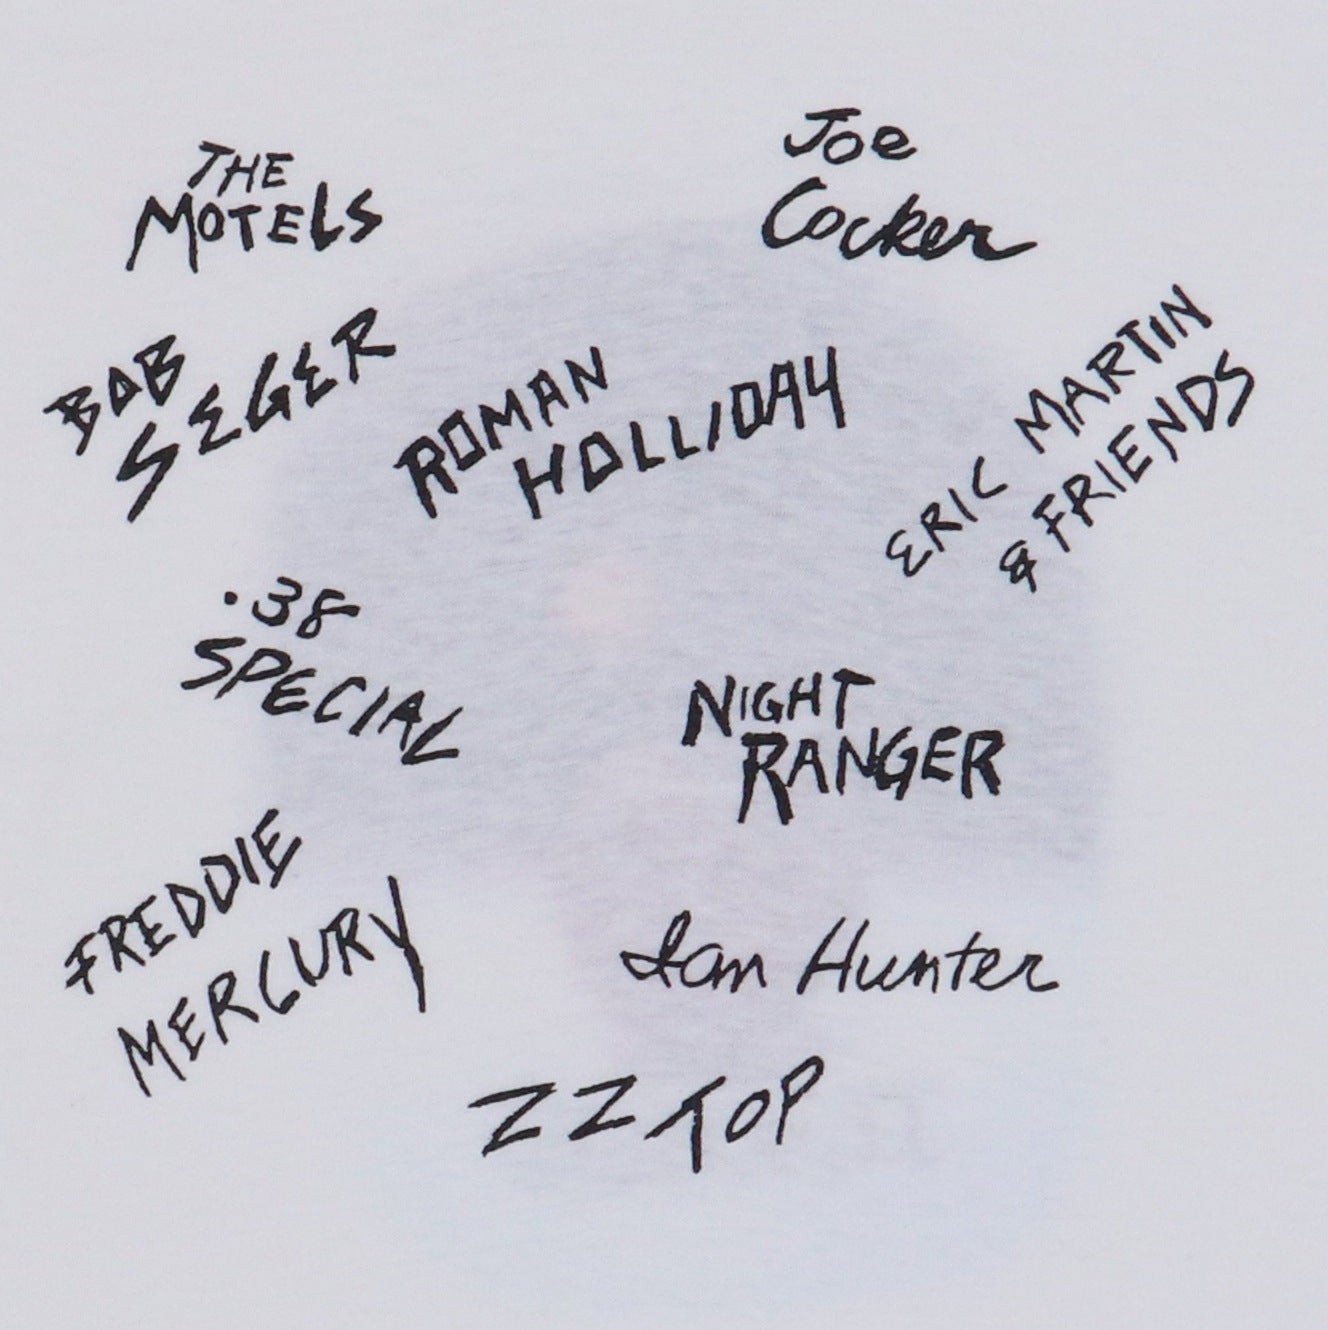 THE
MOTELS
Joe
Cocker
BOB
SEGER
ROMAN
HOLLIDAY
ERIC MARTIN
& FRIENDS
.38
SPECIAL
NIGHT
RANGER
FREDDIE
MERCURY
Ian Hunter
ZZ TOP